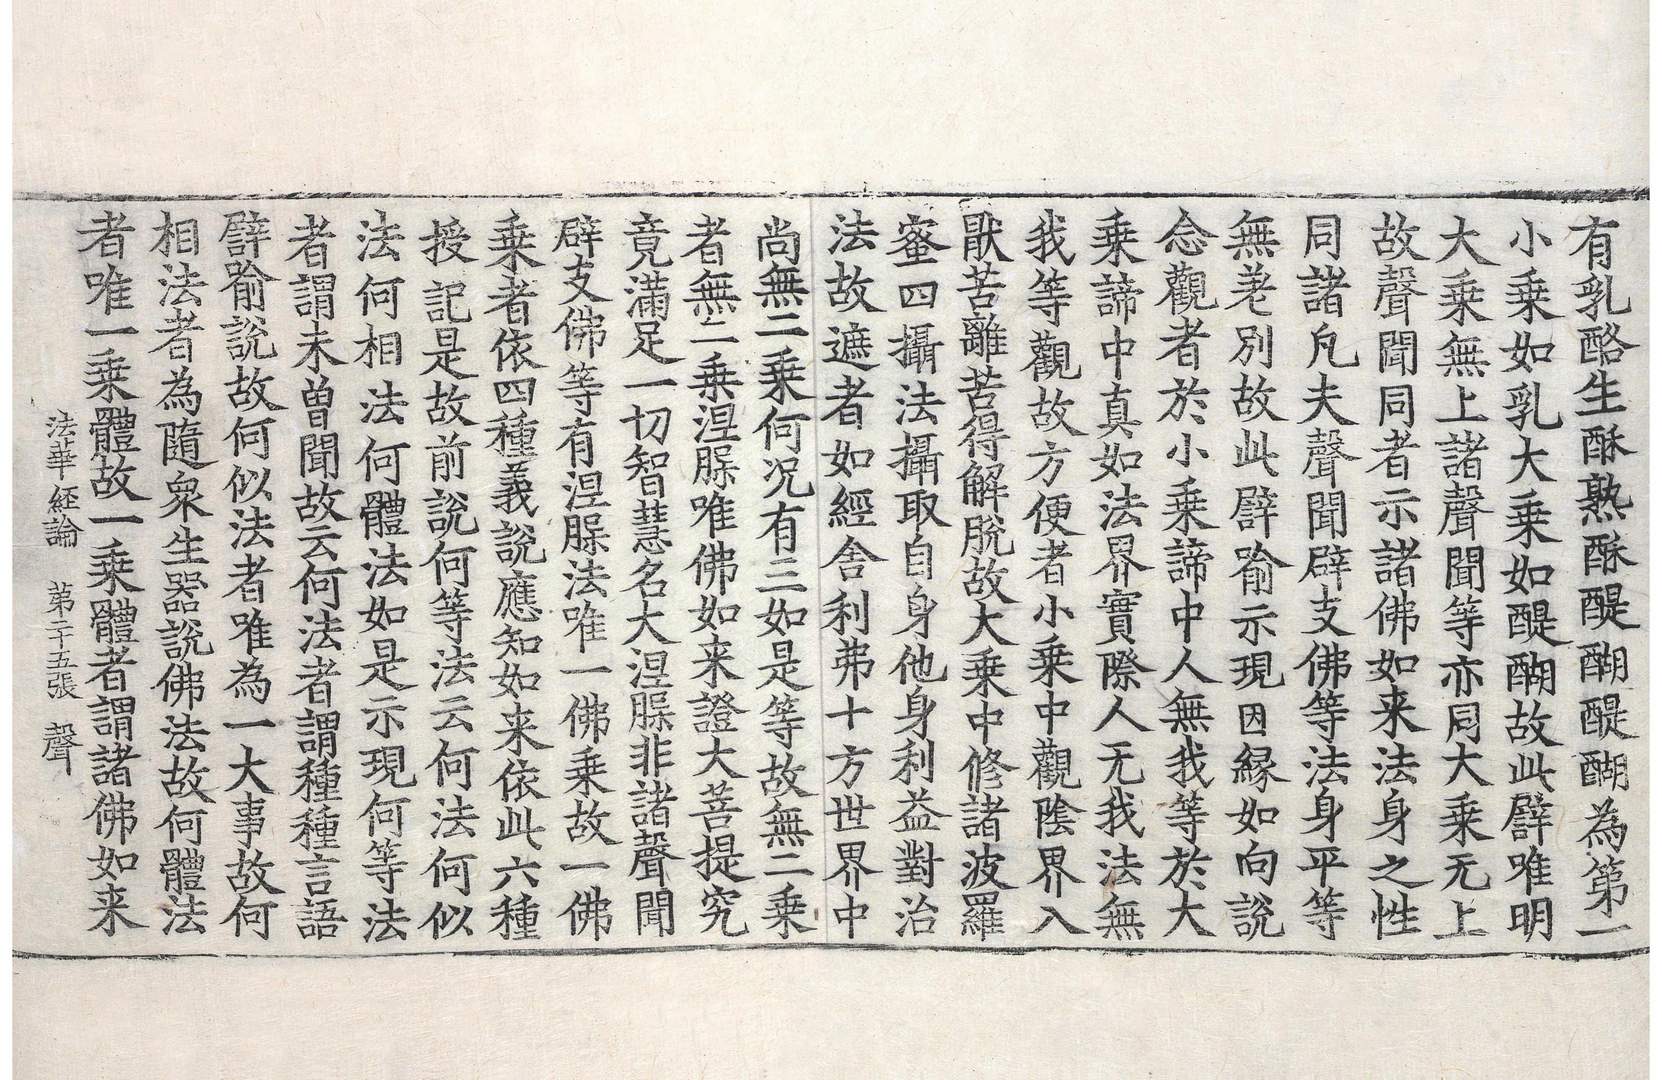 有乳酪生酥熟酥醍醐醍醐為第一
小乗如乳大乗如醍醐故此譬唯明
大乗無上諸聲聞等亦同大乗无上
故聲聞同者示諸佛如来法身之性
同諸凢夫聲聞辟支佛等法身平等
無差別故此譬喻示現因縁如向說
念觀者於小乗諦中人無我等於大
乗諦中真如法界實際人无我法無
我等觀故方便者小乗中觀陰界入
猒苦離苦得解脫故大乗中修諸波羅
蜜四攝法攝取自身他身利益對治
法故遮者如經舍利弗十方世界中
尚無二乗何况有三如是等故無二乗
者無二乗涅槃唯佛如来證大菩提究
竟滿足一切智慧名大涅槃非諸聲聞
辟支佛等有涅槃法唯一佛乗故一佛
乗者依四種義說應知如来依此六種
授記是故前說何等法云何法何似
法何相法何體法如是示現何等法
者謂未曽聞故云何法者謂種種言語
譬喻說故何似法者唯為一大事故何
相法者為隨衆生器說佛法故何體法
者唯一乗體故一乗體者謂諸佛如来
法華経論　第二十五張　聲